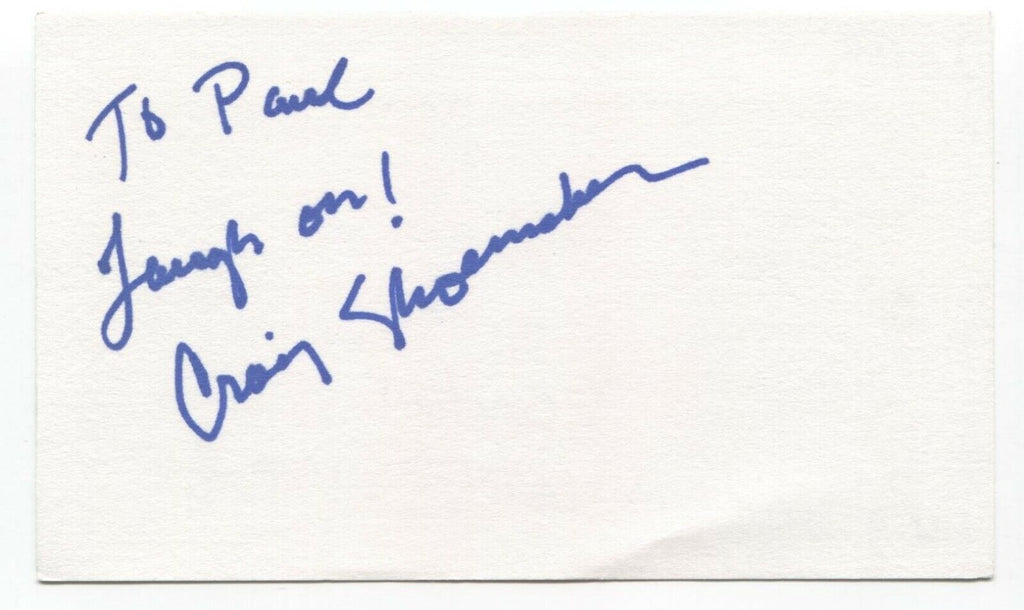 To Paul
Laugh on!
Craig Shoemaker